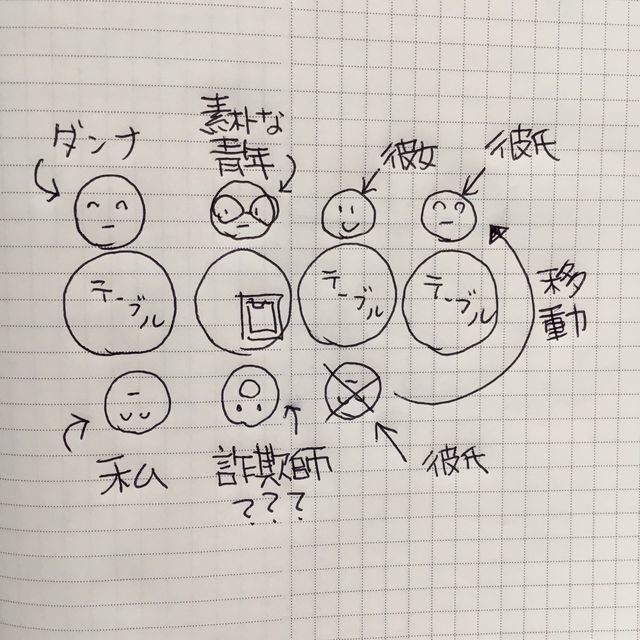 ダンナ
素朴な
青年
彼女
彼氏
テーブル
テーブル
テーブル
移
動
私
詐欺師
???
彼氏